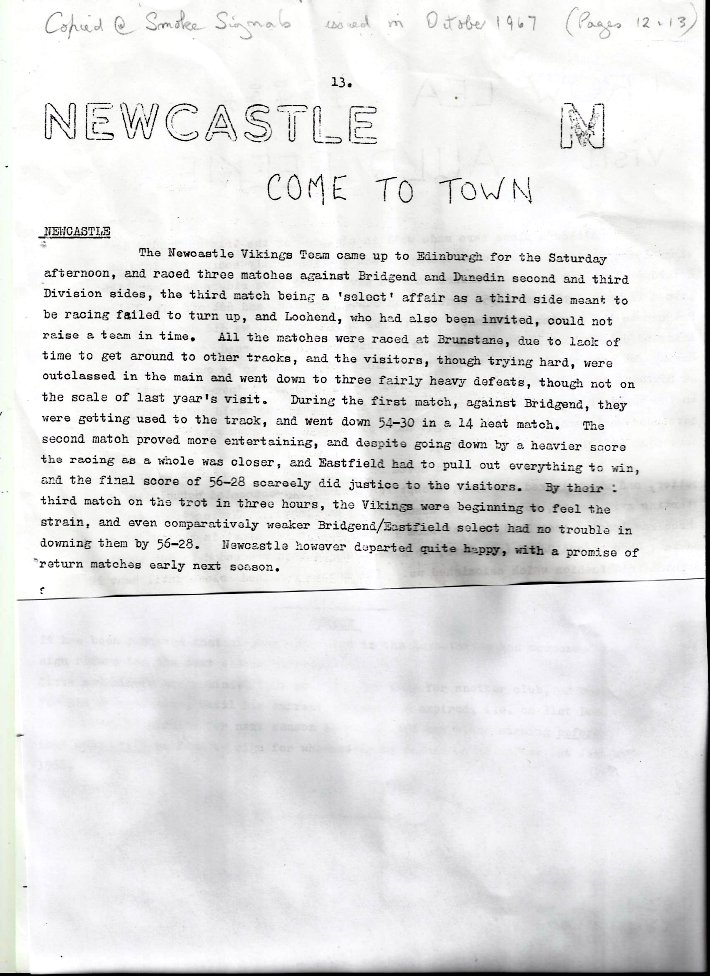 Copied @ Smoke Signals issued in October 1967 (Pages 12 & 13)
13.
NEWCASTLE N
COME TO TOWN
NEWCASTLE
The Newcastle Vikings Team came up to Edinburgh for the Saturday
afternoon, and raced three matches against Bridgend and Dunedin second and third
Division sides, the third match being a 'select' affair as a third side meant to
be racing failed to turn up, and Lochend, who had also been invited, could not
raise a team in time. All the matches were raced at Brunstane, due to lack of
time to get around to other tracks, and the visitors, though trying hard, were
outclassed in the main and went down to three fairly heavy defeats, though not on
the scale of last year's visit. During the first match, against Bridgend, they
were getting used to the track, and went down 54-30 in a 14 heat match. The
second match proved more entertaining, and despite going down by a heavier score
the racing as a whole was closer, and Eastfield had to pull out everything to win,
and the final score of 56-28 scarcely did justice to the visitors. By their
third match on the trot in three hours, the Vikings were beginning to feel the
strain, and even comparatively weaker Bridgend/Eastfield select had no trouble in
downing them by 56-28. Newcastle however departed quite happy, with a promise of
return matches early next season.